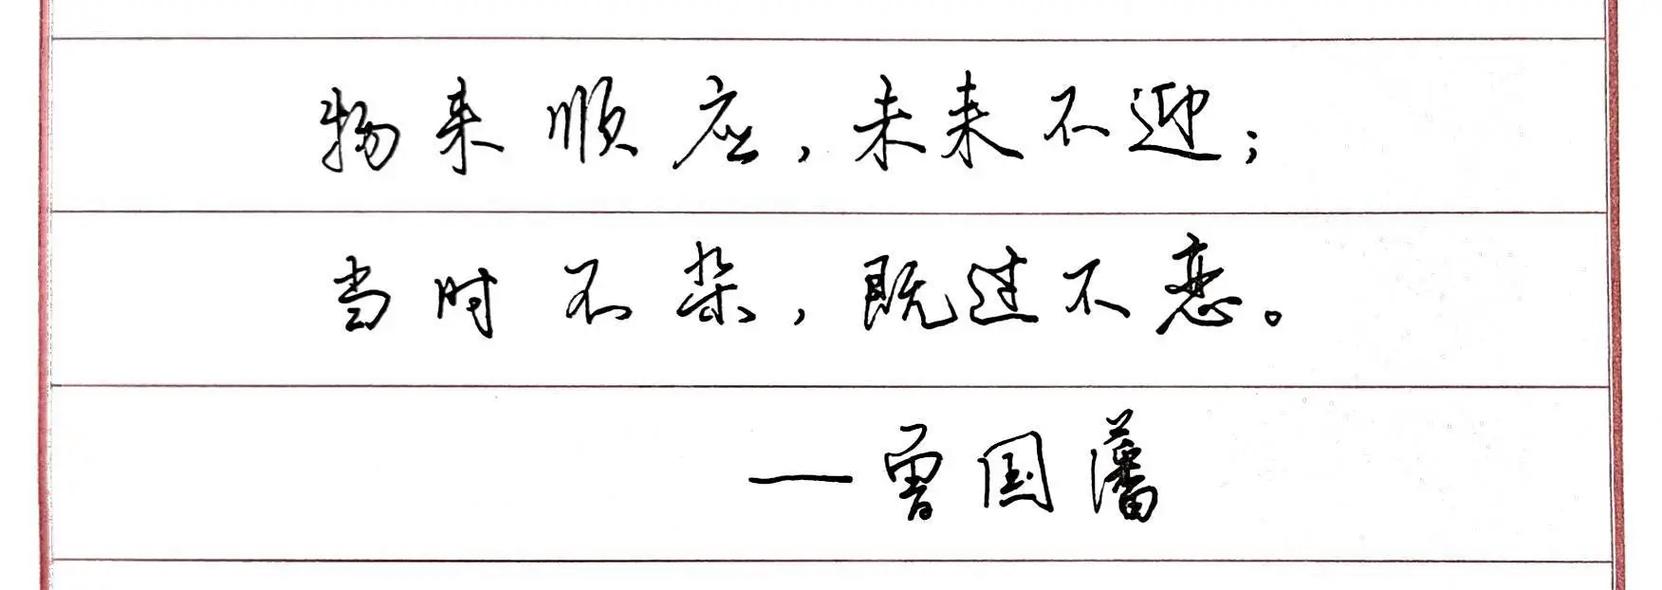 物来顺应，未来不迎；
当时不杂，既过不恋。
—曾国藩